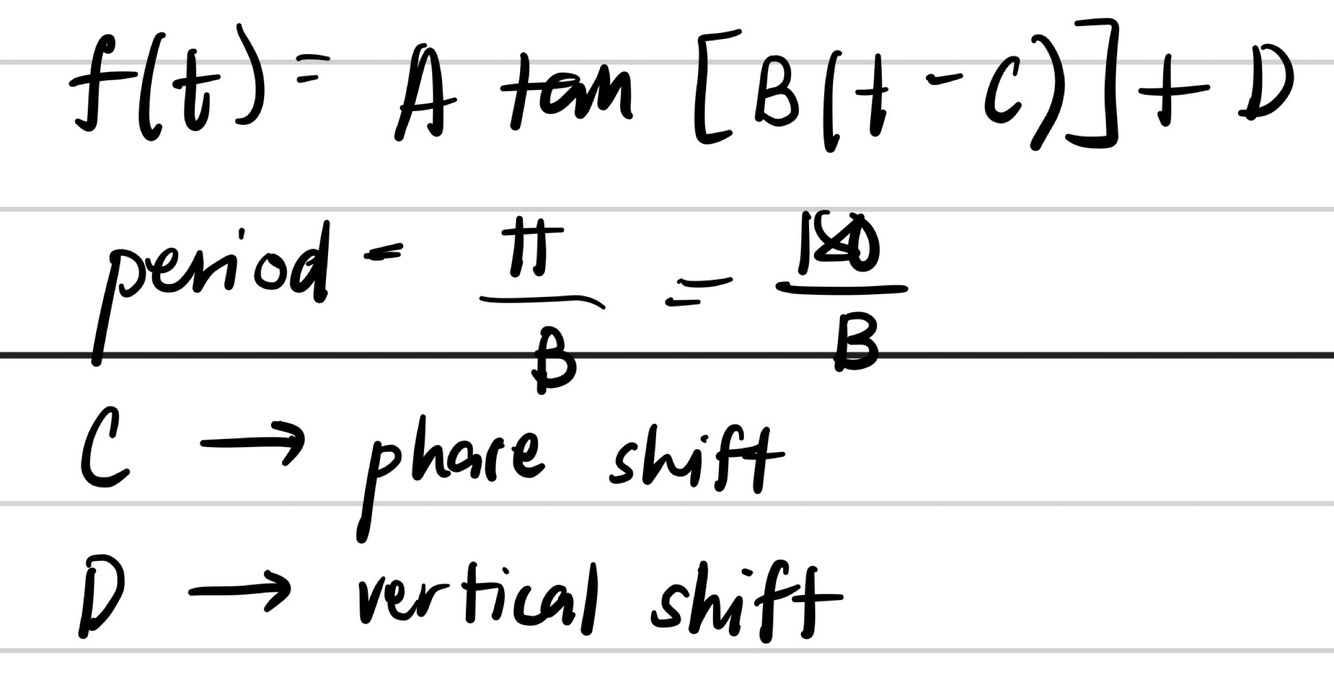 f(t) = A tan [B(t - C)] + D
period = π/B = 180/B
C → phase shift
D → vertical shift